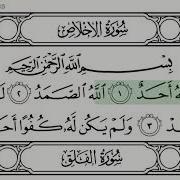 سُورَةُ الإِخْلَاصِ
بِسْمِ ٱللَّهِ ٱلرَّحْمَٰنِ ٱلرَّحِيمِ
أَحَدٌ ١ ٱللَّهُ ٱلصَّمَدُ ٢
٣ وَلَمْ يَكُن لَّهُۥ كُفُوًا
سُورَةُ الفَلَقِ